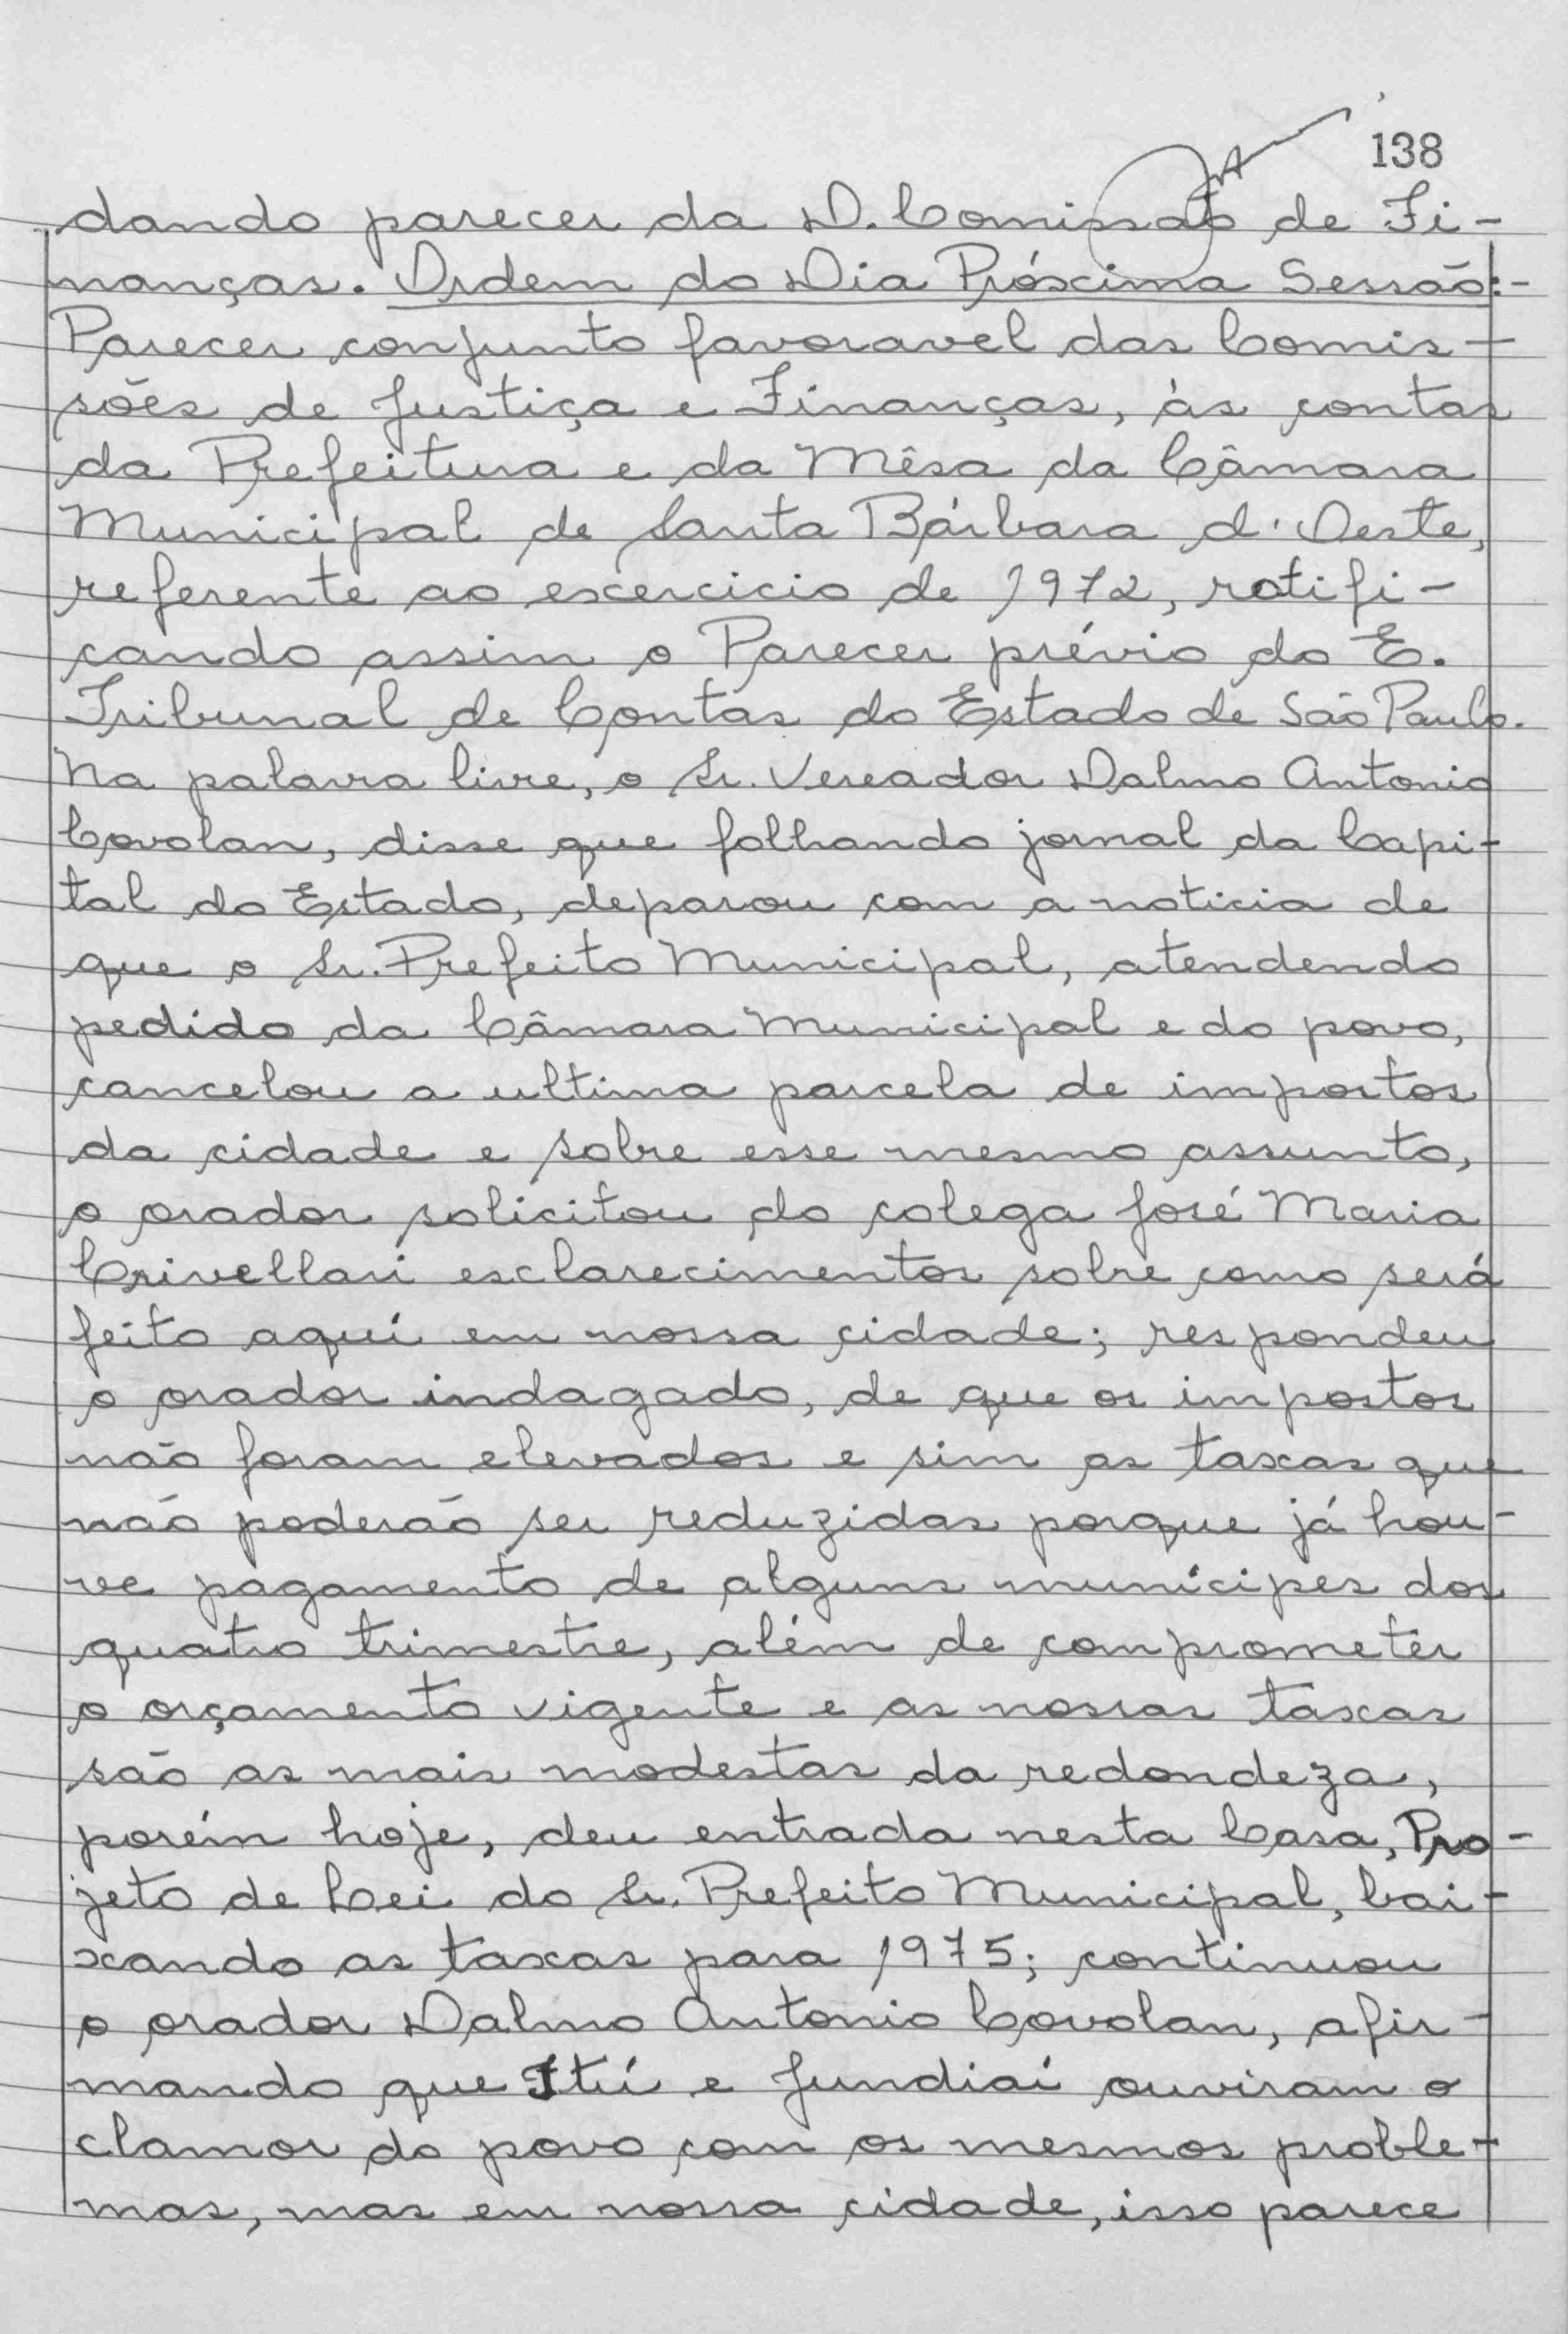 138
dando parecer da D. Comissão de Fi-
nanças. Ordem do Dia Próxima Sessão:-
Parecer conjunto favoravel das Comis-
sões de Justiça e Finanças, às contas
da Prefeitura e da Mêsa da Câmara
Municipal de Santa Bárbara d'Oeste,
referente ao excercicio de 1972, ratifi-
cando assim o Parecer prévio do E.
Tribunal de Contas do Estado de São Paulo.
Na palavra livre, o Sr. Vereador Dalmo Antonio
Covolan, disse que folhando jornal da Capi-
tal do Estado, deparou com a noticia de
que o Sr. Prefeito Municipal, atendendo
pedido da Câmara Municipal e do povo,
cancelou a ultima parcela de impostos
da cidade e sobre esse mesmo assunto,
o orador solicitou do colega José Maria
Crivellari esclarecimentos sobre como será
feito aquí em nossa cidade; respondeu
o orador indagado, de que os impostos
não foram elevados e sim as taxas que
não poderão ser reduzidas porque já hou-
ve pagamento de alguns munícipes dos
quatro trimestre, além de comprometer
o orçamento vigente e as nossas taxas
são as mais modestas da redondeza,
porém hoje, deu entrada nesta Casa, Pro-
jeto de Lei do Sr. Prefeito Municipal, bai-
xando as taxas para 1975; continuou
o orador Dalmo Antonio Covolan, afir-
mando que Itú e Jundiaí ouviram o
clamor do povo com os mesmos proble-
mas, mas em nossa cidade, isso parece